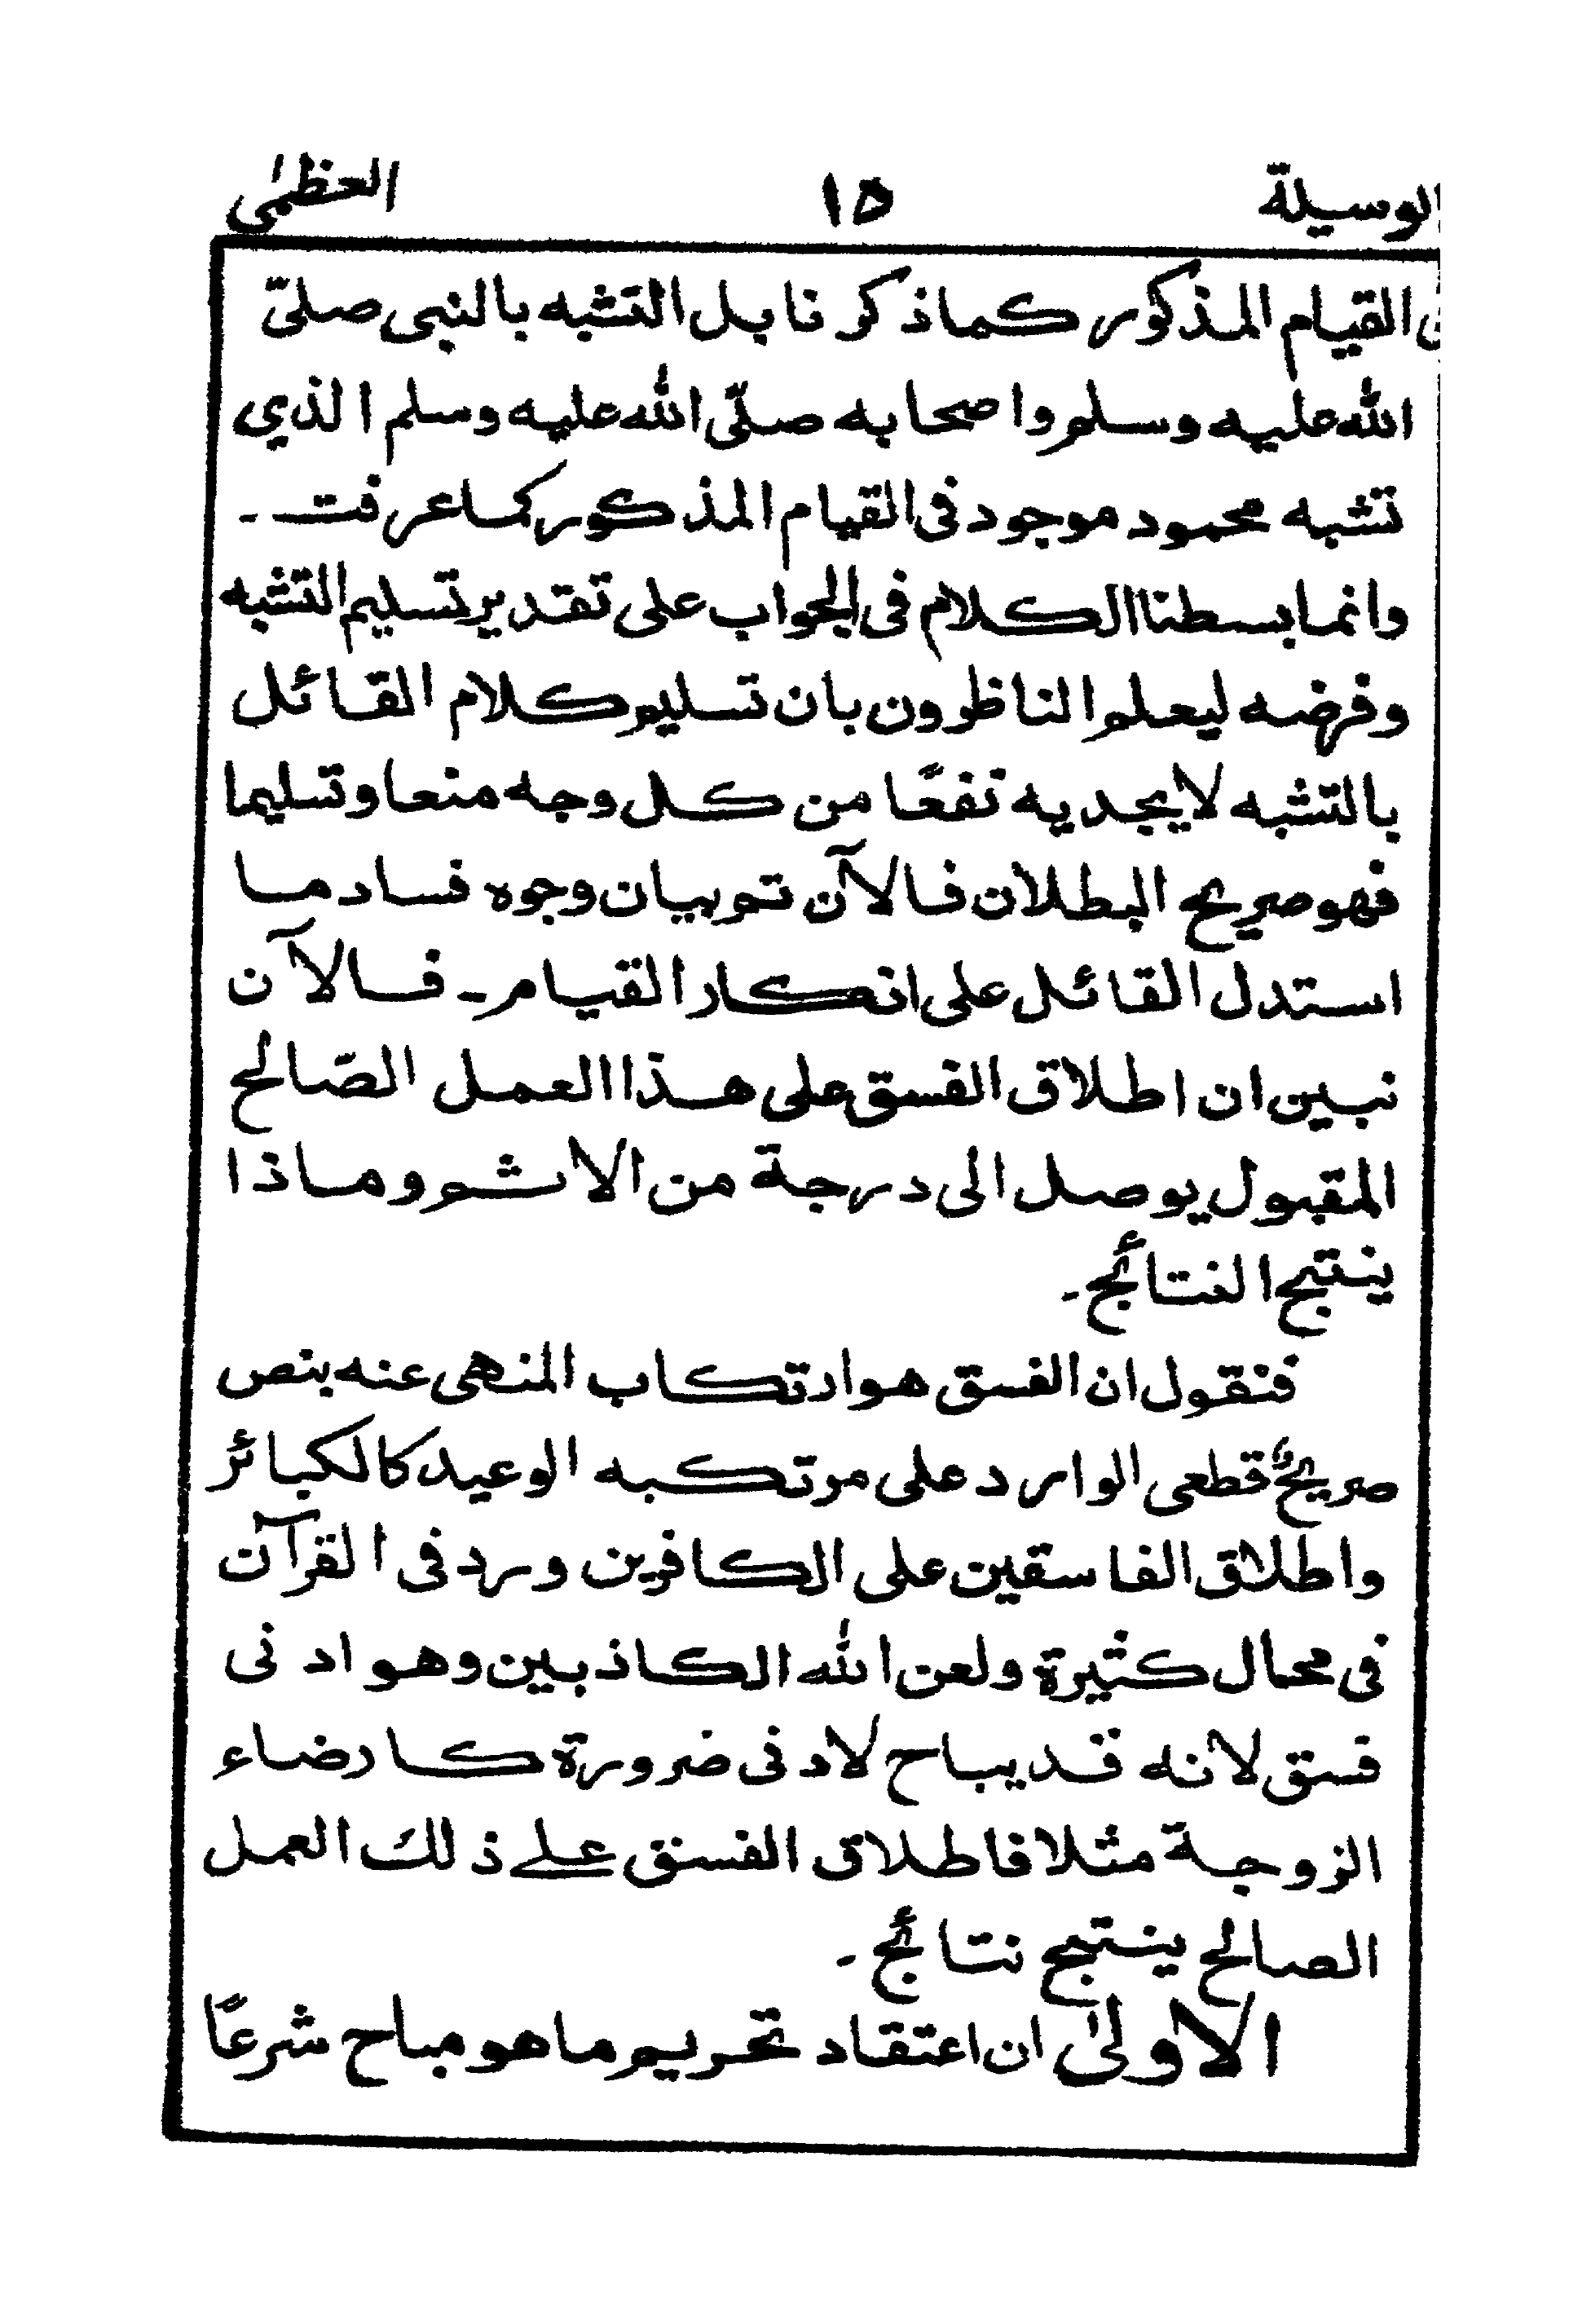 الوسيلة ١٥ العظمٰى
القيام المذكور كما ذكرنا بل التشبه بالنبى صلّى
الله عليه وسلم واصحابه صلّى الله عليه وسلم الذي
تشبه محمود موجود فى القيام المذكور كما عرفت ۔
وانما بسطنا الكلام فى الجواب على تقدير تسليم التشبه
وفرضه ليعلم الناظرون بان تسليم كلام القائل
بالتشبه لا يجديه نفعًا من كل وجه منعا وتسليما
فهو صريح البطلان فالآن تم بيان وجوه فساد ما
استدل القائل على انكار القيام ۔ فالآن
نبين ان اطلاق الفسق على هذا العمل الصّالح
المقبول يوصل الى درجة من الاثم وماذا
ينتج النتائج ۔
فنقول ان الفسق هو ارتكاب المنهى عنه بنص
صريحٌ قطعى الوارد على مرتكبه الوعيد كالكبائر
واطلاق الفاسقين على الكافرين ورد فى القرآن
فى محال كثيرة ولعن الله الكاذبين وهو ادنى
فسق لانه قد يباح لادنى ضرورة كارضاء
الزوجة مثلا فاطلاق الفسق علے ذلك العمل
الصالح ينتج نتائج ۔
الاولىٰ ان اعتقاد تحريم ما هو مباح شرعًا